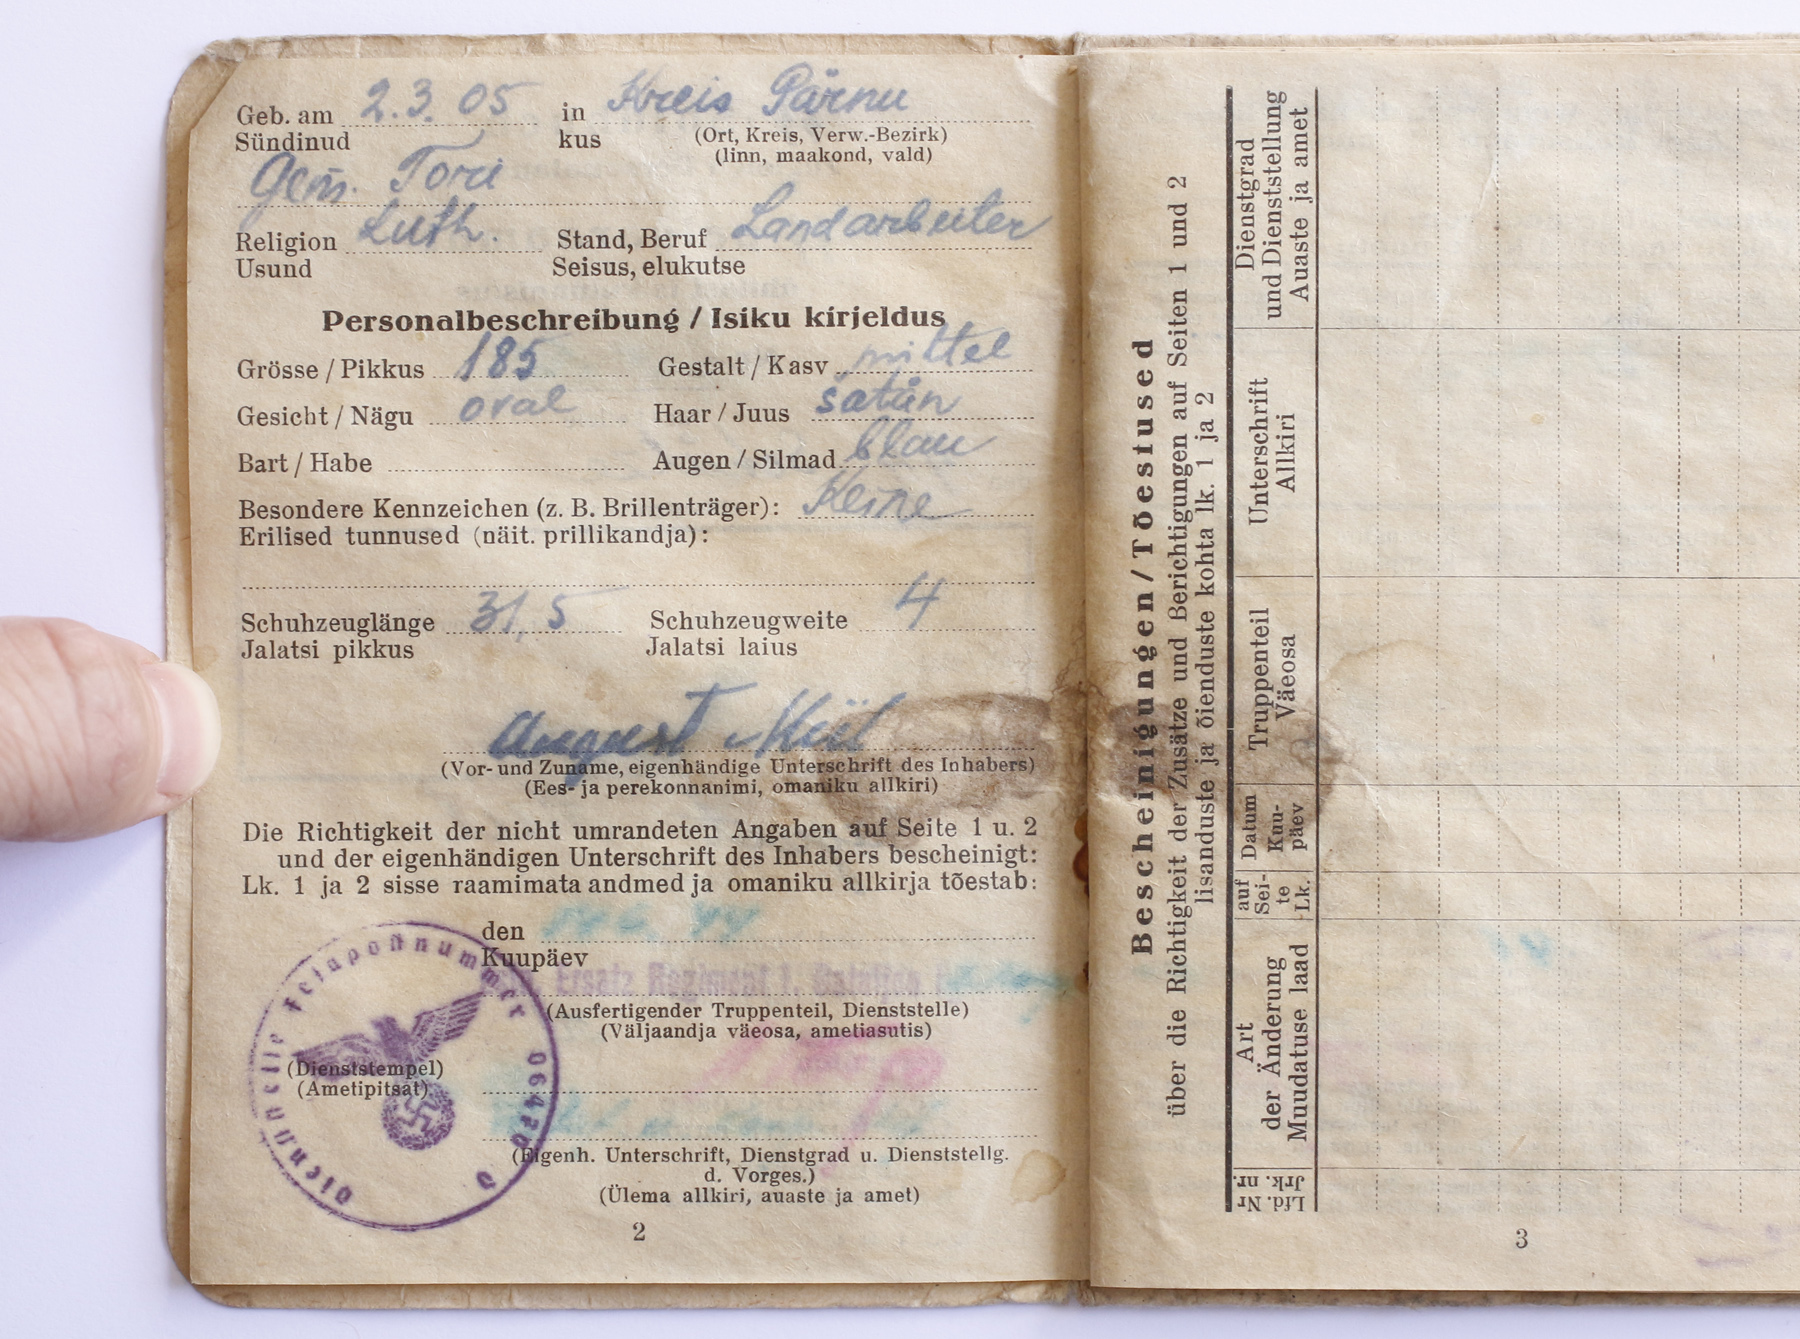 Geb. am 2.3.05 in Kreis Pärnu
Sündinud kus (Ort, Kreis, Verw.-Bezirk)
(linn, maakond, vald)
Gem. Tori
Religion Luth. Stand, Beruf Landarbeiter
Usund Seisus, elukutse
Personalbeschreibung / Isiku kirjeldus
Grösse / Pikkus 185 Gestalt / Kasv mittel
Gesicht / Nägu oval Haar / Juus satün
Bart / Habe Augen / Silmad blau
Besondere Kennzeichen (z. B. Brillenträger): Keine
Erilised tunnused (näit. prillikandja):
Schuhzeuglänge 31,5 Schuhzeugweite 4
Jalatsi pikkus Jalatsi laius
August Kiil
(Vor- und Zuname, eigenhändige Unterschrift des Inhabers)
(Ees- ja perekonnanimi, omaniku allkiri)
Die Richtigkeit der nicht umrandeten Angaben auf Seite 1 u. 2
und der eigenhändigen Unterschrift des Inhabers bescheinigt:
Lk. 1 ja 2 sisse raamimata andmed ja omaniku allkirja tõestab:
den
Kuupäev
Ersatz Regiment 1. Bataljon
(Ausfertigender Truppenteil, Dienststelle)
(Väljaandja väeosa, ametiasutis)
Dienststelle Feldpostnummer 06470 D
(Dienststempel)
(Ametipitsat)
(Eigenh. Unterschrift, Dienstgrad u. Dienststellg.
d. Vorges.)
(Ülema allkiri, auaste ja amet)
2
Bescheinigungen / Tõestused
über die Richtigkeit der Zusätze und Berichtigungen auf Seiten 1 und 2
lisanduste ja õienduste kohta lk. 1 ja 2
Lfd. Nr
Jrk. nr.
Art
der Änderung
Muudatuse laad
auf
Sei-
te
Lk.
Datum
Kuu-
päev
Truppenteil
Väeosa
Unterschrift
Allkiri
Dienstgrad
und Dienststellung
Auaste ja amet
3